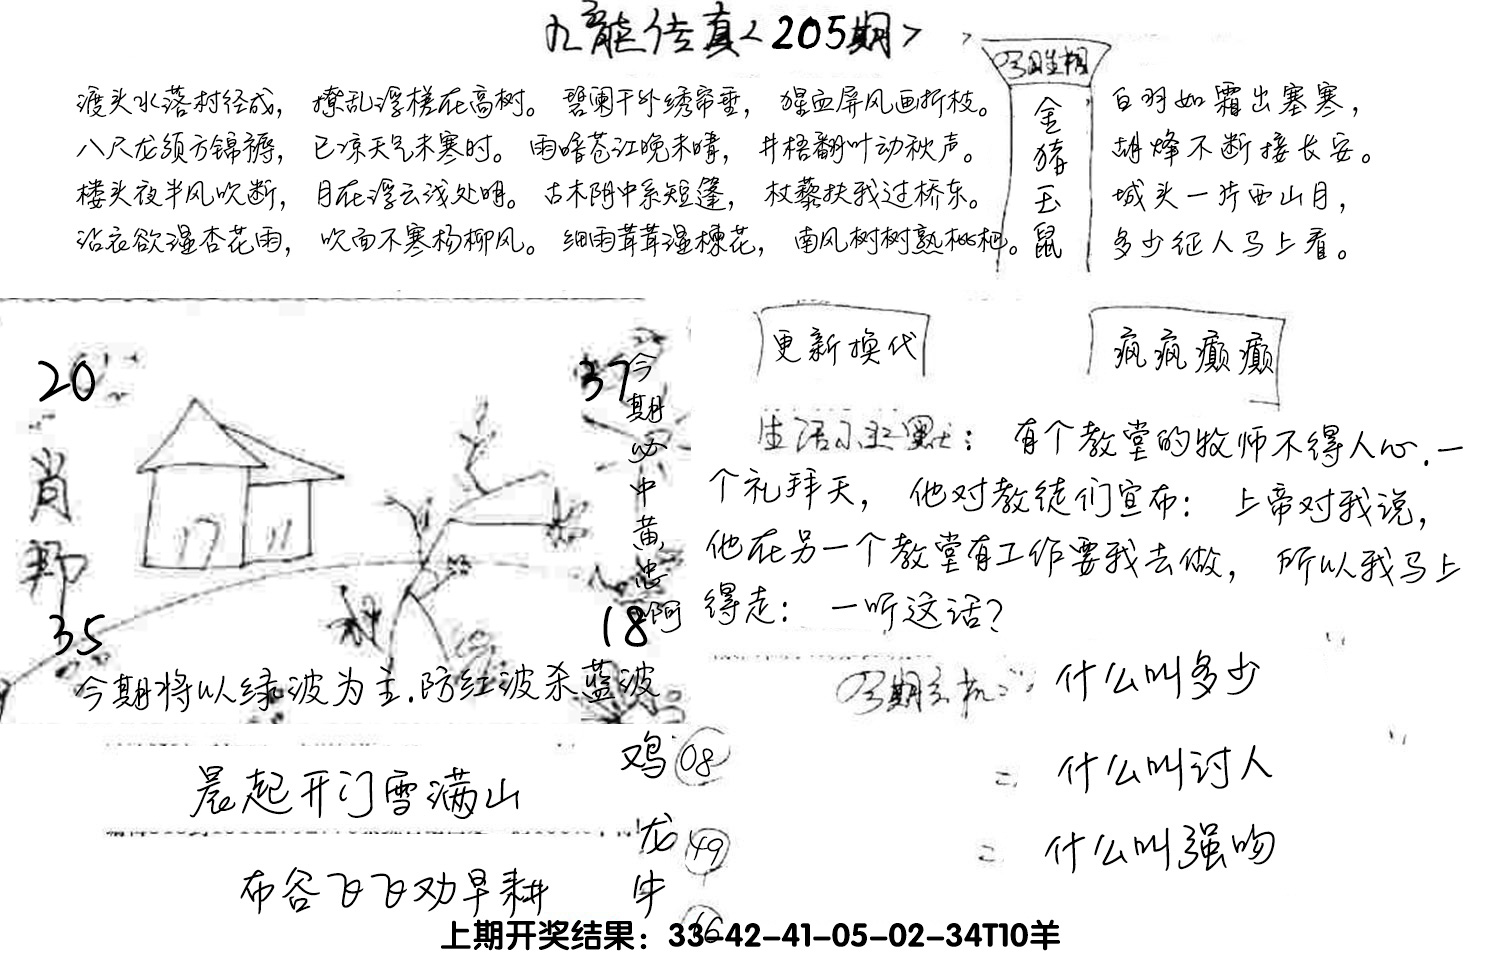 九龙传真<205期>
渡头水落村径成，撩乱浮槎在高树。碧阑干外绣帘垂，猩血屏风画折枝。
八尺龙须方锦褥，已凉天气未寒时。雨暗苍江晚未晴，井梧翻叶动秋声。
楼头夜半风吹断，月在浮云浅处明。古木阴中系短篷，杖藜扶我过桥东。
沾衣欲湿杏花雨，吹面不寒杨柳风。细雨茸茸湿楝花，南风树树熟枇杷。
金猪玉鼠
白羽如霜出塞寒，
胡烽不断接长安。
城头一片西山月，
多少征人马上看。
20
37
肖
35
18
今期必中黄忠啊
今期将以绿波为主.防红波杀蓝波
更新换代
疯疯癫癫
生活小幽默：有个教堂的牧师不得人心.一
个礼拜天，他对教徒们宣布：上帝对我说，
他在另一个教堂有工作要我去做，所以我马上
得走：一听这话？
今期玄机：什么叫多少
二 什么叫讨人
二 什么叫强吻
晨起开门雪满山
布谷飞飞劝早耕
鸡 08
龙 49
牛
上期开奖结果：33-42-41-05-02-34T10羊